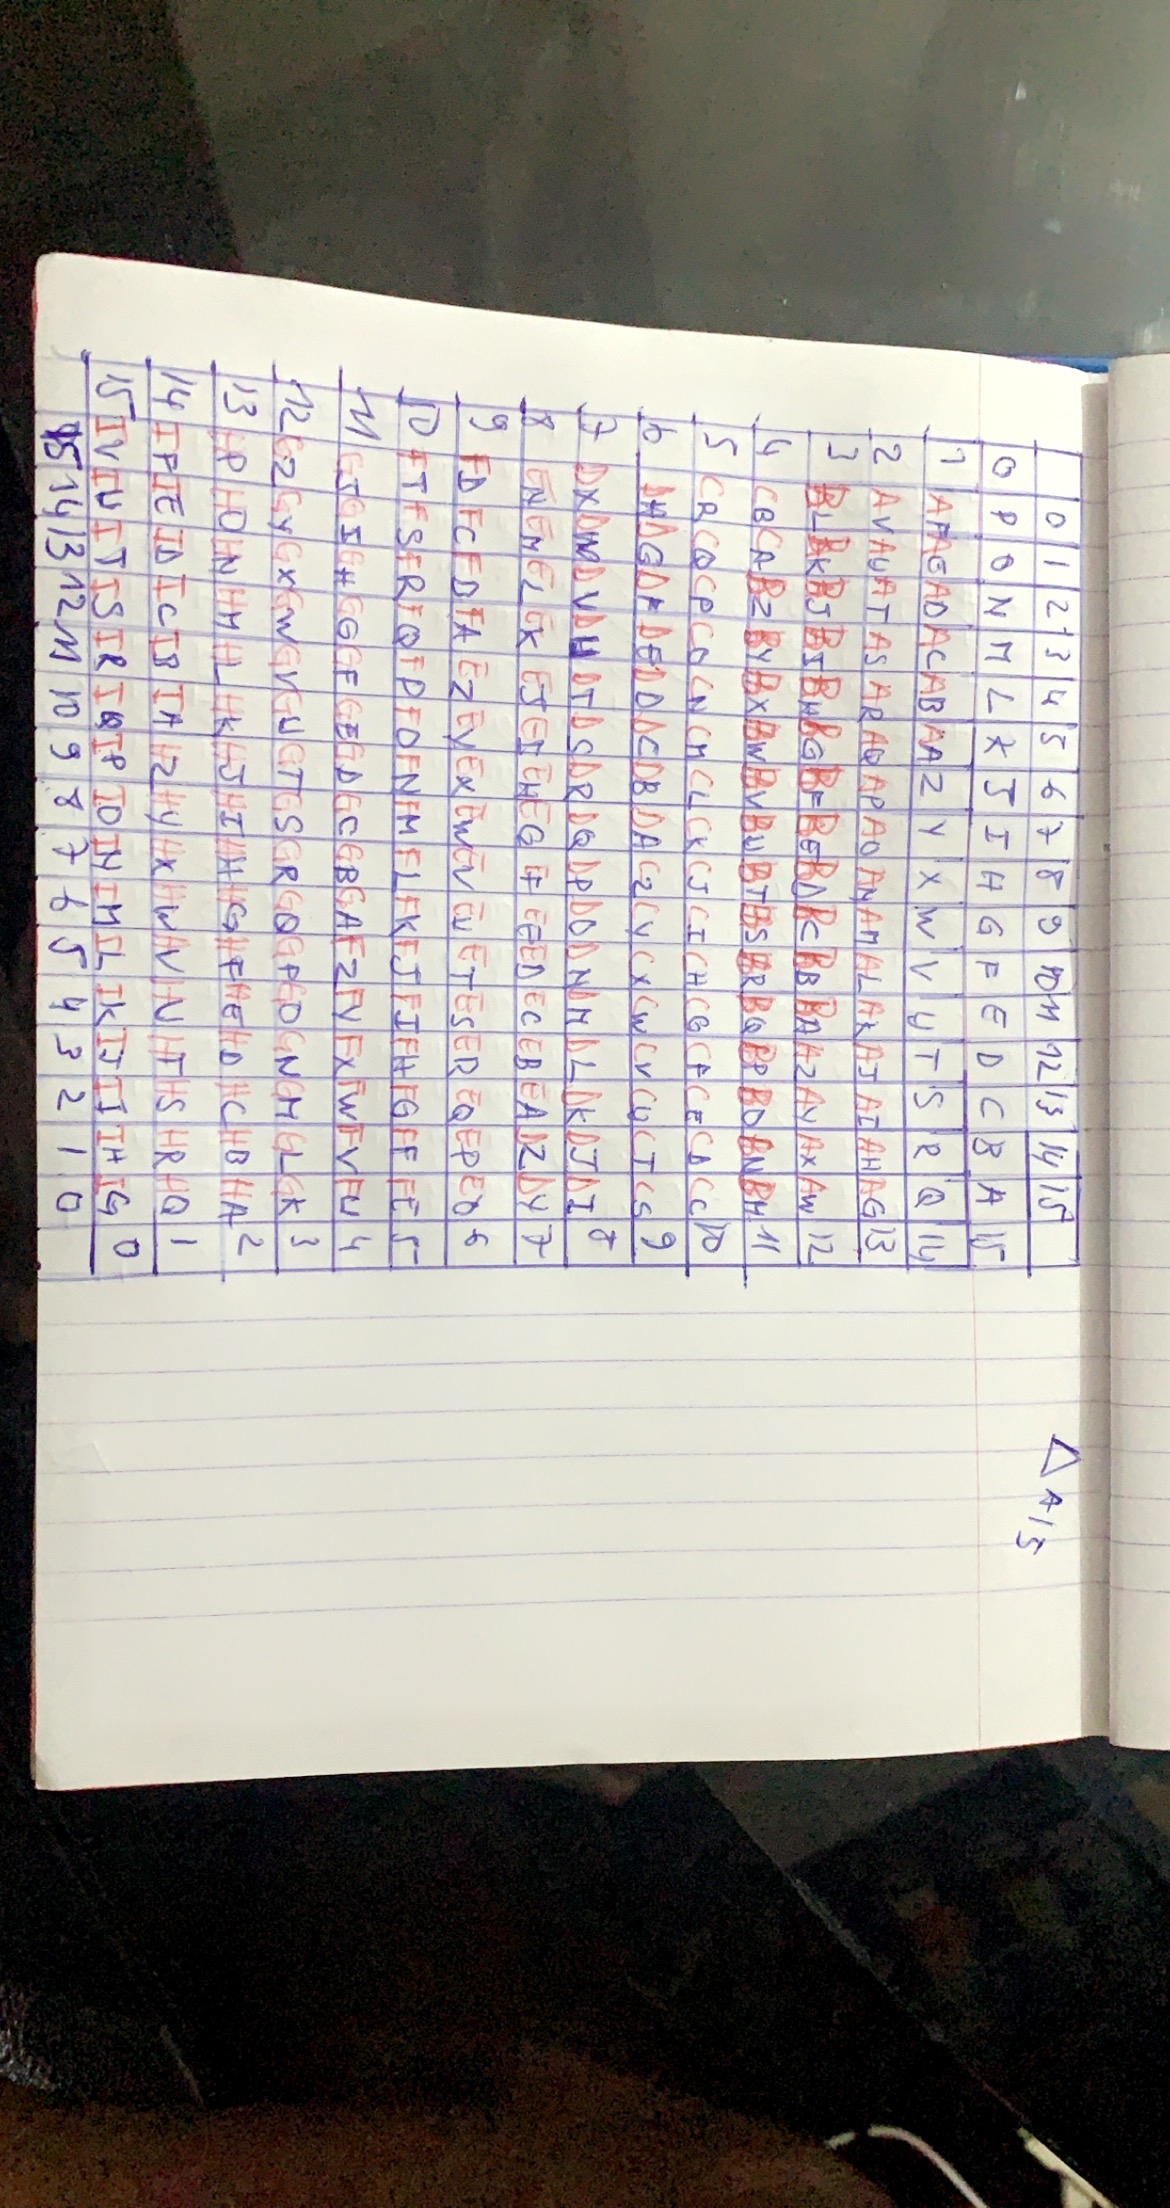 0 1 2 3 4 5 6 7 8 9 10 11 12 13 14 15
△ A15
0 P O N M L K J I H G F E D C B A 15
1 AF AE AD AC AB AA Z Y X W V U T S R Q 14
2 AV AU AT AS AR AQ AP AO AN AM AL AK AJ AI AH AG 13
3 BL BK BJ BI BH BG BF BE BD BC BB BA AZ AY AX AW 12
4 CB CA BZ BY BX BW BV BU BT BS BR BQ BP BO BN BM 11
5 CR CQ CP CO CN CM CL CK CJ CI CH CG CF CE CD CC 10
6 DH DG DF DE DD DC DB DA CZ CY CX CW CV CU CT CS 9
7 DX DW DV DU DT DS DR DQ DP DO DN DM DL DK DJ DI 8
8 EN EM EL EK EJ EI EH EG EF EE ED EC EB EA DZ DY 7
9 FD FC FB FA EZ EY EX EW EV EU ET ES ER EQ EP EO 6
10 FT FS FR FQ FP FO FN FM FL FK FJ FI FH FG FF FE 5
11 GJ GI GH GG GF GE GD GC GB GA FZ FY FX FW FV FU 4
12 GZ GY GX GW GV GU GT GS GR GQ GP GO GN GM GL GK 3
13 HP HO HN HM HL HK HJ HI HH HG HF HE HD HC HB HA 2
14 IF IE ID IC IB IA HZ HY HX HW HV HU HT HS HR HQ 1
15 IV IU IT IS IR IQ IP IO IN IM IL IK IJ II IH IG 0
15 14 13 12 11 10 9 8 7 6 5 4 3 2 1 0